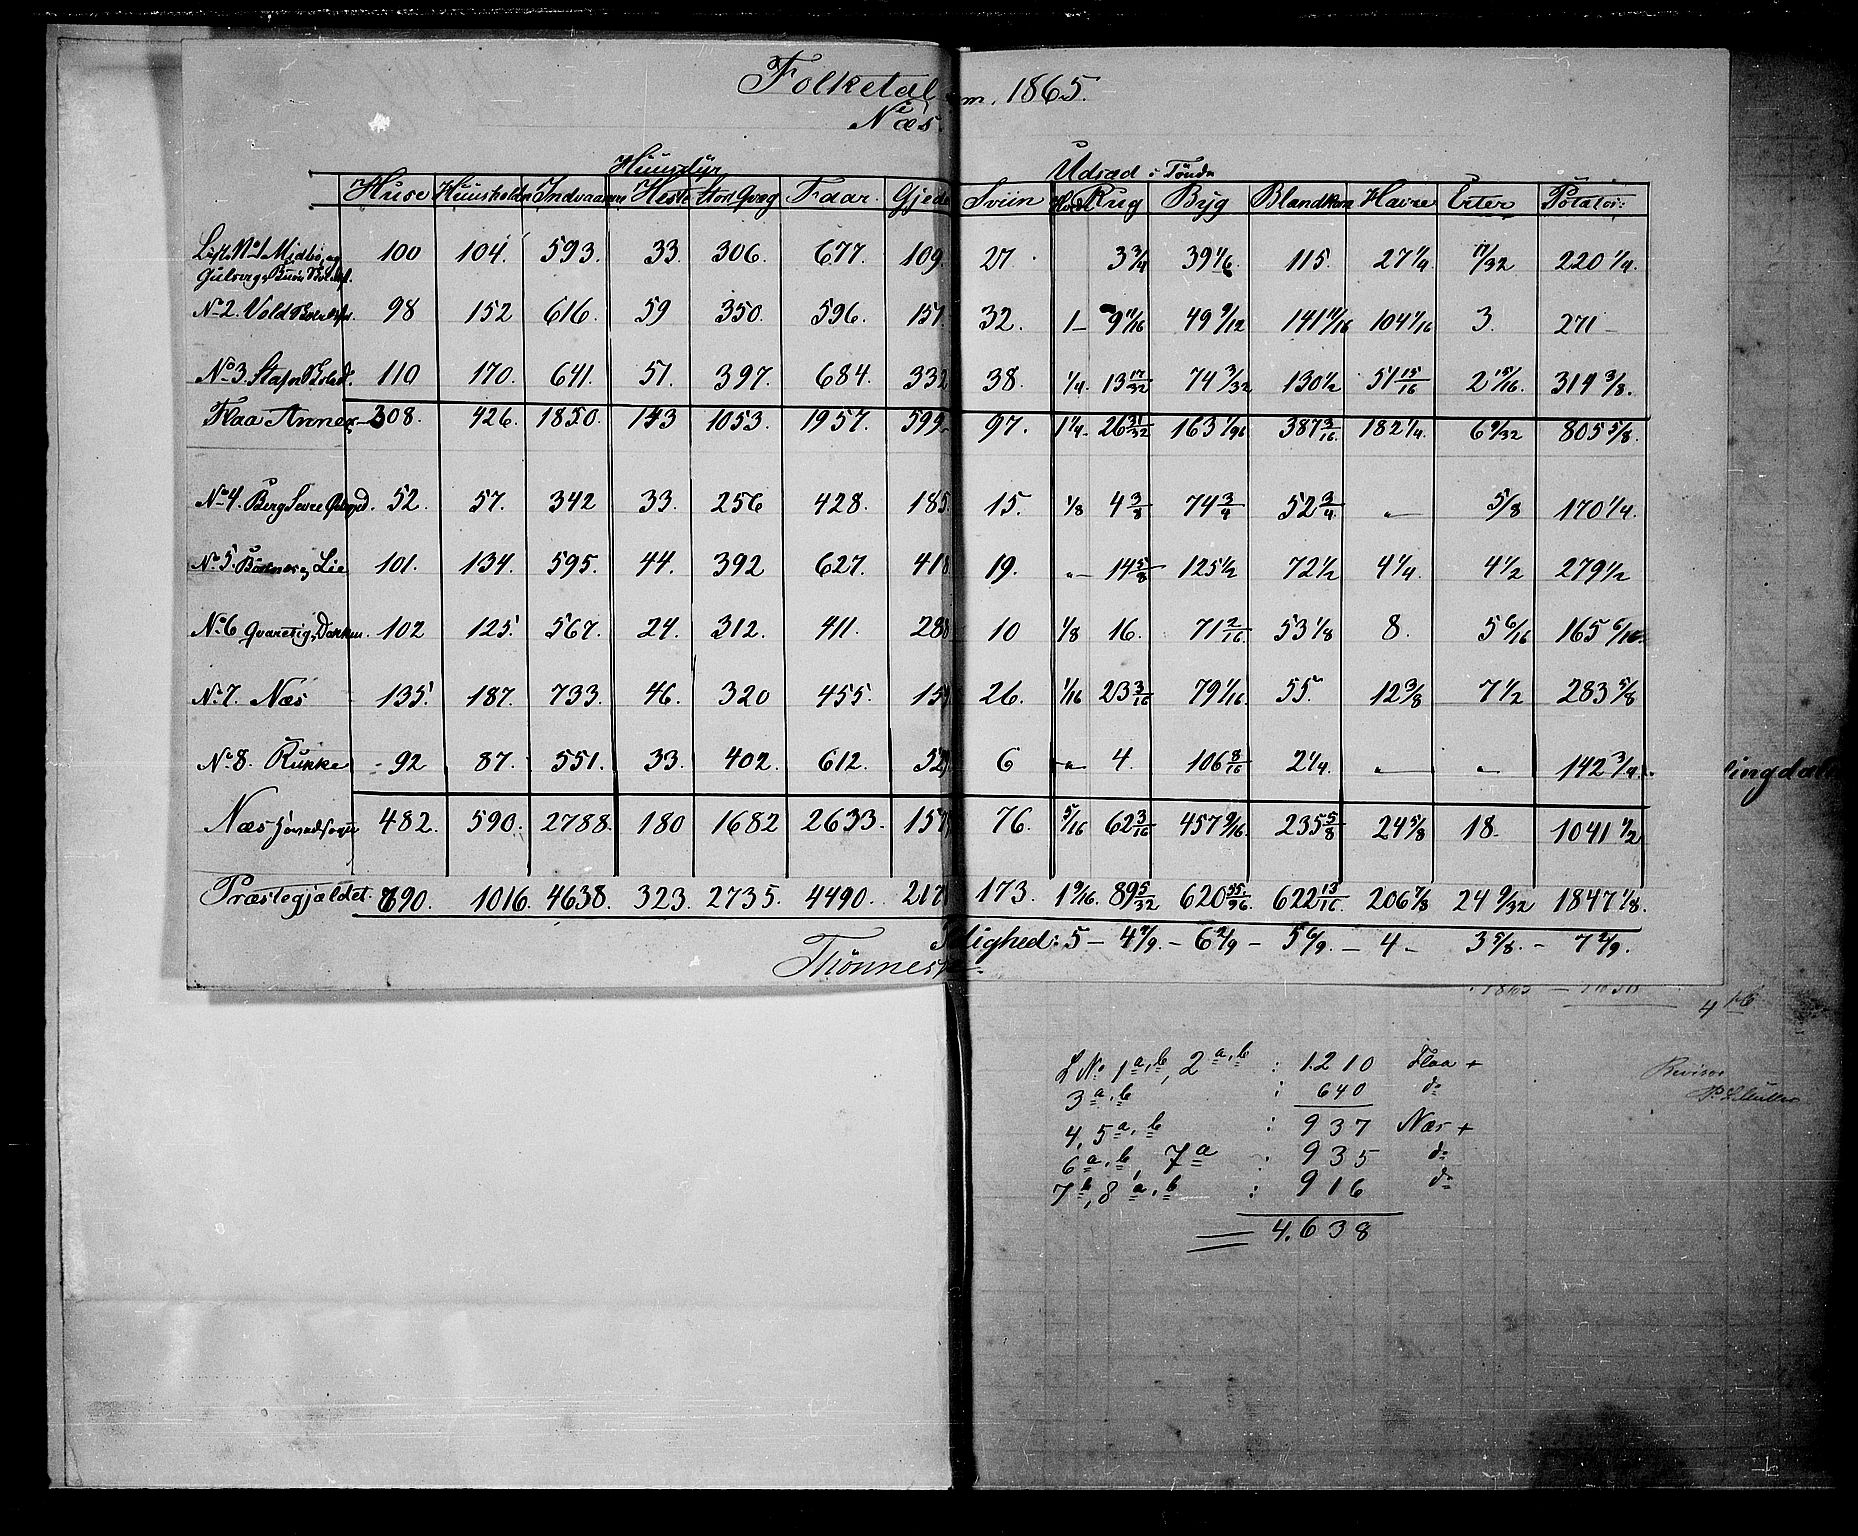 Folketal m. 1865.
i
Næs.
Huusdyr Udsæd i Tønder
Huse Huusholdn Indvaanere Heste Stort Qvæg Faar. Gjede Sviin Hvede Rug Byg Blandkorn Havre Erter Potatos:
List No 1 Midbø, og 100 104. 593. 33. 306. 677. 109. 27 3 3/4 39 1/6. 115. 27 1/4. 17/32 220 1/4.
Gulsvig
No 2. Vold 98 152 616. 59 350. 596. 157. 32. 1 – 9 11/16 49 9/12 141 11/16 104 1/16 3. 271 –
No 3. 110 170. 641. 51. 397. 684. 332 38. 1/4. 13 17/32 74 3/32 130 1/2 51 15/16 2 15/16. 314 3/8.
Flaa Annex – 308. 426. 1850. 143 1053. 1957. 599. 97. 1 1/4. 26 31/32 163 1/96 387 3/16. 182 1/4. 6 9/32 805 5/8.
No 4. Berg 52. 57. 342 33. 256 428. 185. 15. 1/8 4 3/8 74 3/4 52 3/4 „ 5/8 170 1/4.
No 5. Børtnes og Lie 101. 134. 595. 44. 392 627. 418 19. „ – 14 5/8 125 1/2 72 1/2 4 1/4. 4 1/2 279 1/2
No 6 102 125. 567. 24. 312. 411. 288 10 1/8 16. 71 2/16 53 1/8 8. 5 6/16 165 6/16.
No 7. Næs 135. 187. 733. 46. 320 455. 15 26. 1/16 23 3/16 79 1/16. 55. 12 3/8 7 1/2 283 5/8
No 8. Rukke 92 87. 551. 33. 402. 612. 52 6 „ 4. 106 8/16 2 1/4. „ „ 142 3/4.
Næs Hovedsogn 482. 590. 2788. 180 1682 2633. 157 76. 5/16 62 3/16 457 9/16. 235 5/8 24 5/8 18. 1041 1/2
Præstegjældet. 790. 1016. 4638. 323. 2735. 4490. 217 173. 1 9/16. 89 5/32 620 55/96. 622 13/16 206 7/8 24 9/32 1847 1/8.
5 – 4 7/9. – 6 2/9 – 5 6/9. – 4 – 3 5/8. – 7 2/9.
ingdal
1865
L No 1 a, b, 2 a, b : 1.210 Flaa +
3 a, b : 640 do
4, 5 a, b : 937 Næs +
6 a, b, 7 a : 935 do
7 b, 8 a, b : 916 do
4.638
Revisor